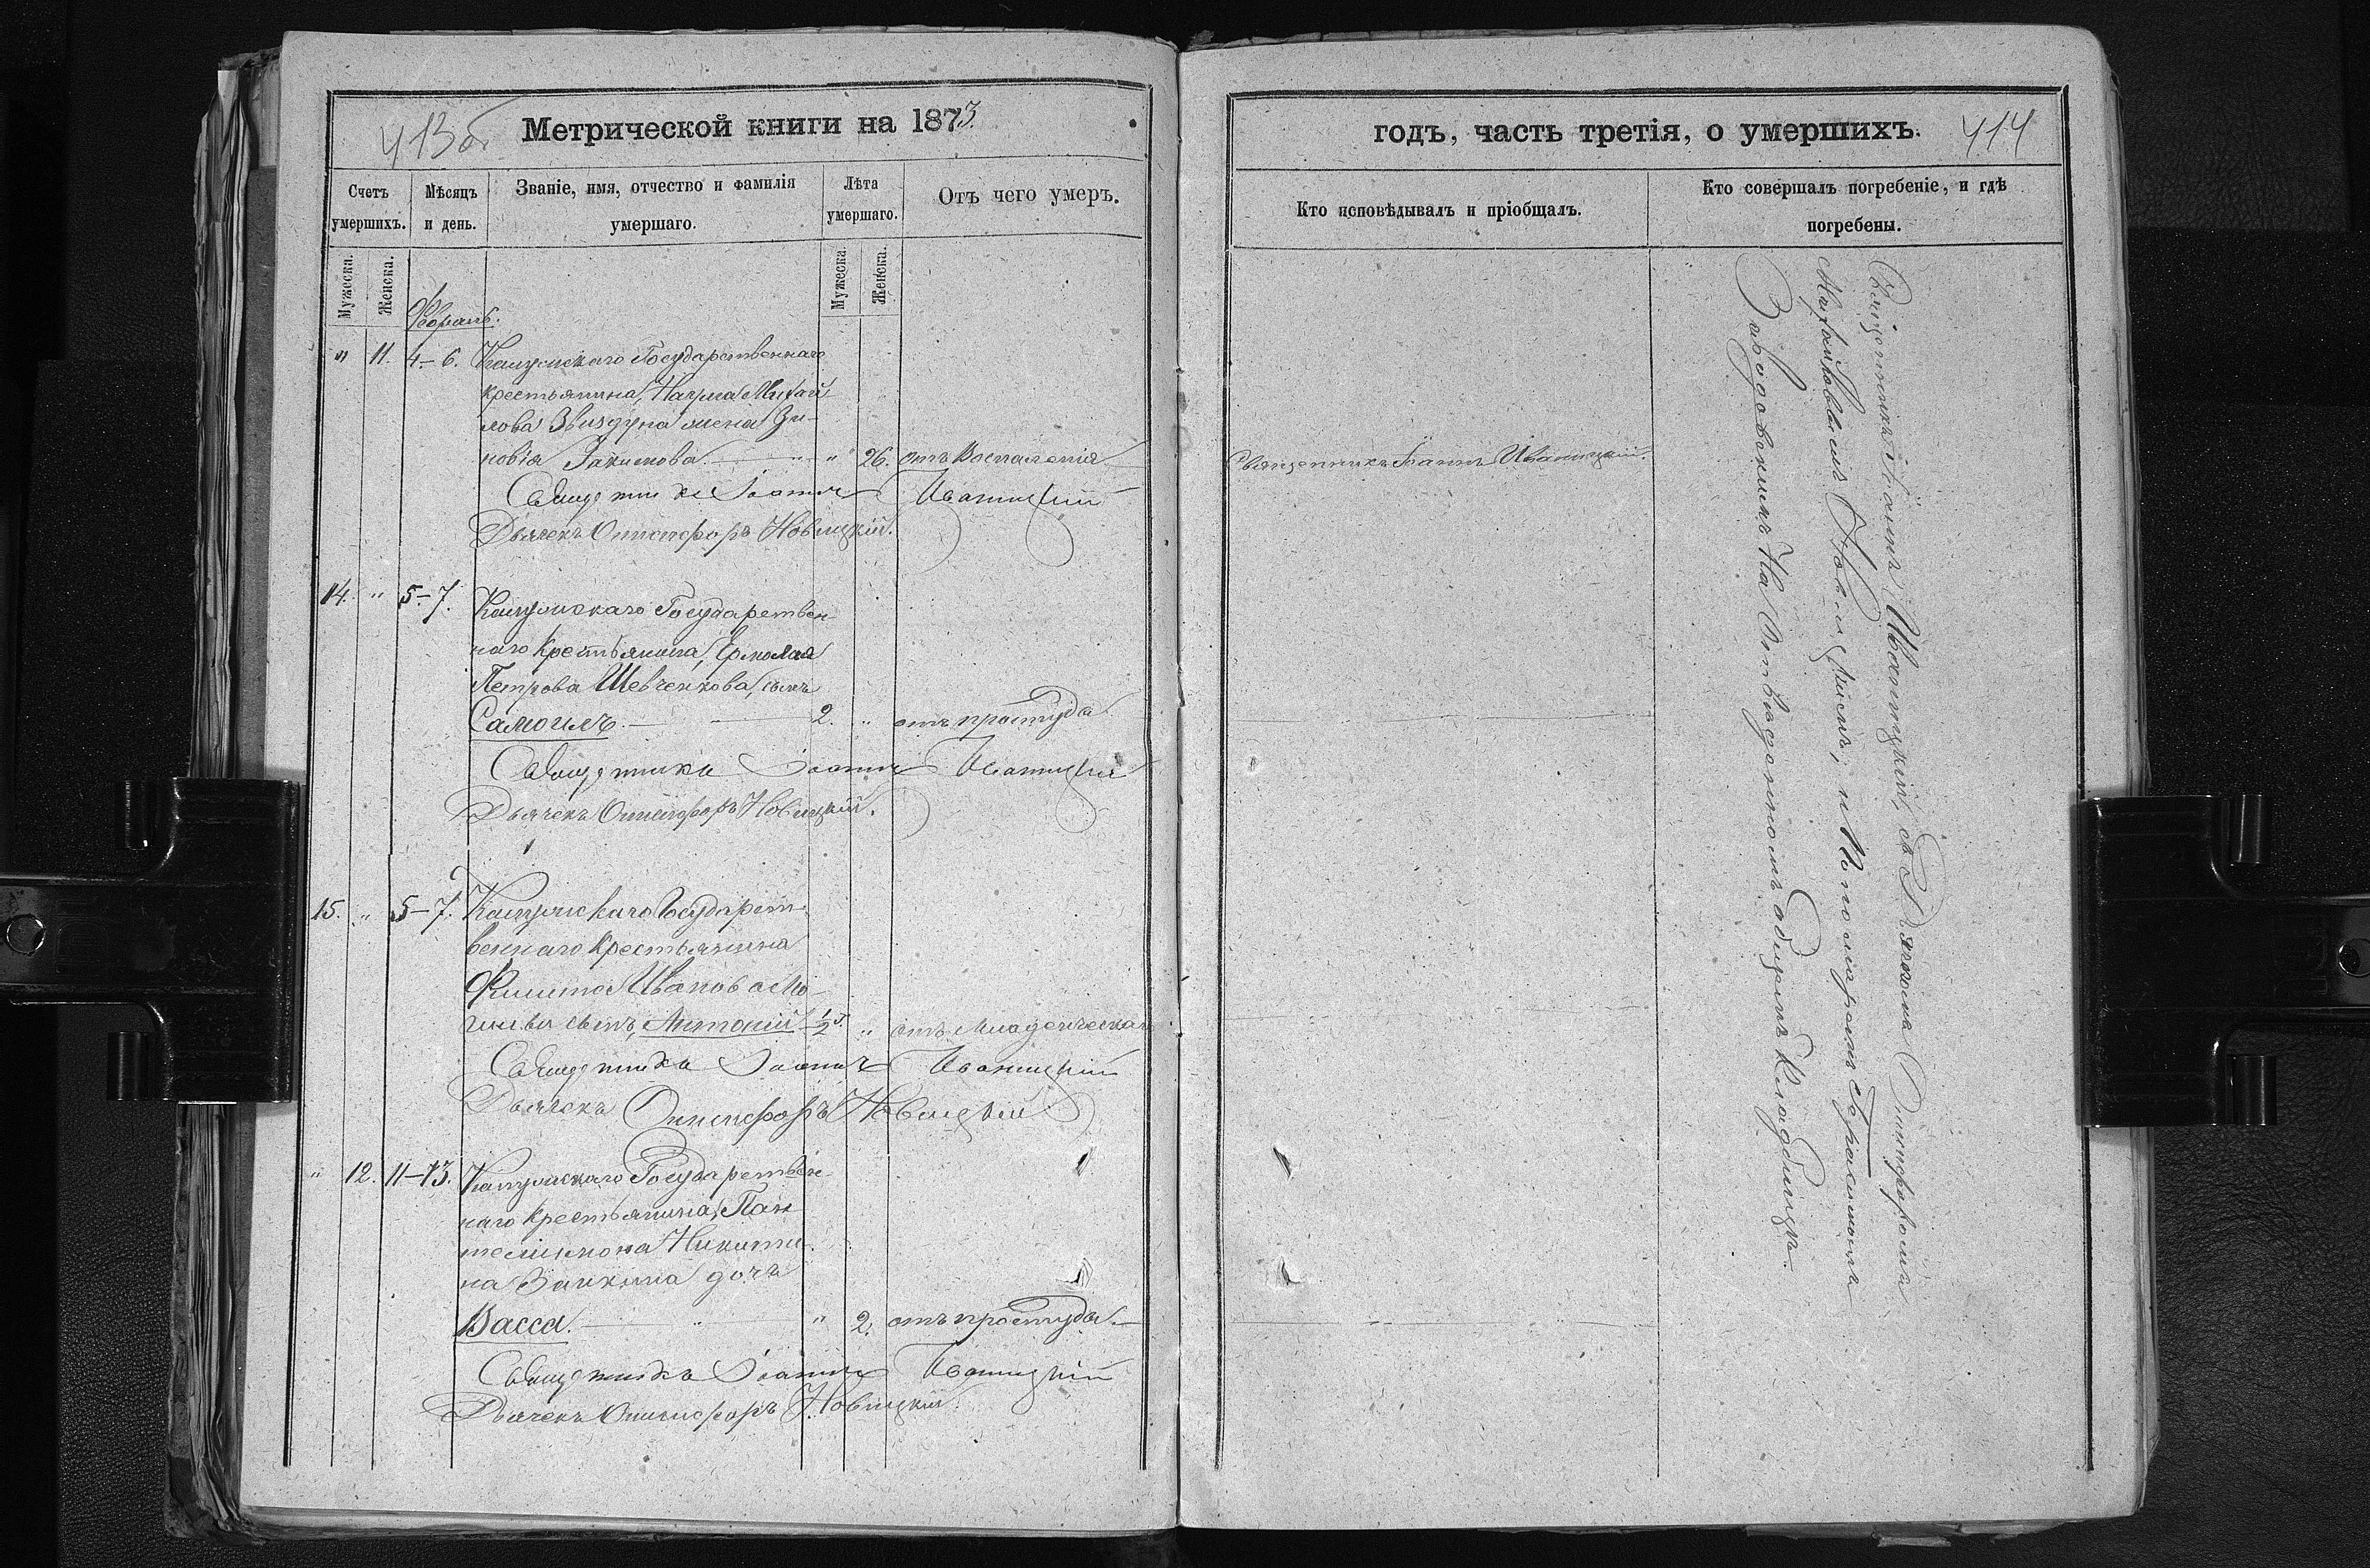 413об.
Метрической книги на 1873.
Счетъ умершихъ.
Мѣсяцъ и день.
Званіе, имя, отчество и фамилія умершаго.
Лѣта умершаго.
Отъ чего умеръ.
Мужеска.
Женска.
Мужеска
Женска.
Февраль.
" 11. 4-6. Государственнаго
крестьянина, Наума Михай
лова Звиздуна жена Зи-
новія Іакимова. " 26. отъ воспаленія
Священникъ Іоаннъ Иваницкій
Дьячекъ Онисифоръ Новицкій.
14. " 5-7. Государствен
наго крестьянина, Ермолая
Петрова Шевченкова, сынъ
Самоилъ. 2. " отъ простуды
Священникъ Іоаннъ Иваницкій
Дьячекъ Онисифоръ Новицкій.
15. " 5-7. Государст
веннаго крестьянина
Иванова
сынъ, Антоній 1/2 г. " отъ младенческой
Священникъ Іоаннъ Иваницкій
Дьячекъ Онисифоръ Новицкій
" 12. 11-13. Государствен
наго крестьянина, Пан
телимона Никити
на Заикина дочь
Васса. " 2. отъ простуды.
Священникъ Іоаннъ Иваницкій
Дьячекъ Онисифоръ Новицкій.
годъ, часть третія, о умершихъ.
414
Кто исповѣдывалъ и пріобщалъ.
Кто совершалъ погребеніе, и гдѣ погребены.
Священникъ Іоаннъ Иваницкій.
Священникъ Іоаннъ Иваницкій, съ Дьячкомъ Онисифоромъ
Михайловымъ Новицкимъ, и Пономаремъ Герасимомъ
на отведенномъ общемъ кладбищѣ.